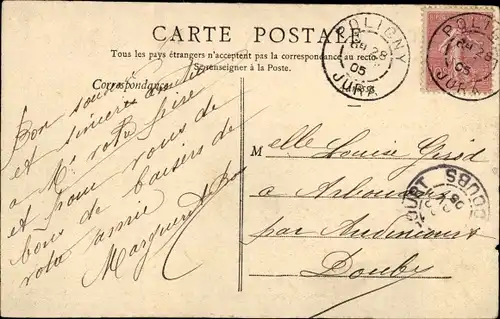 CARTE POSTALE
Tous les pays étrangers n'acceptent pas la correspondance au recto
Se renseigner à la Poste.
Correspondance
POLIGNY
28
05
JURA
POLI
28
05
JURA
Bon souvenir
et sincères amitiés
à Mr votre frère
et pour vous de
bons de baisers de
votre amie
Marguerite
Melle Louise Girod
a Arbouans
par Audincourt
Doubs
DOUBS